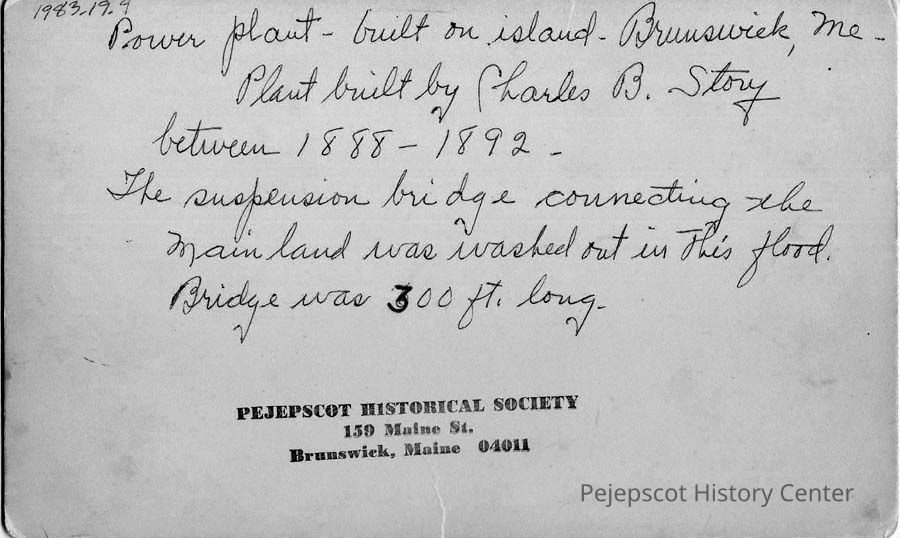 1983.19.9
Power plant - built on island - Brunswick, Me -
Plant built by Charles B. Story
between 1888 - 1892 -
The suspension bridge connecting the
Mainland was washed out in this flood.
Bridge was 300 ft. long.
PEJEPSCOT HISTORICAL SOCIETY
159 Maine St.
Brunswick, Maine 04011
Pejepscot History Center